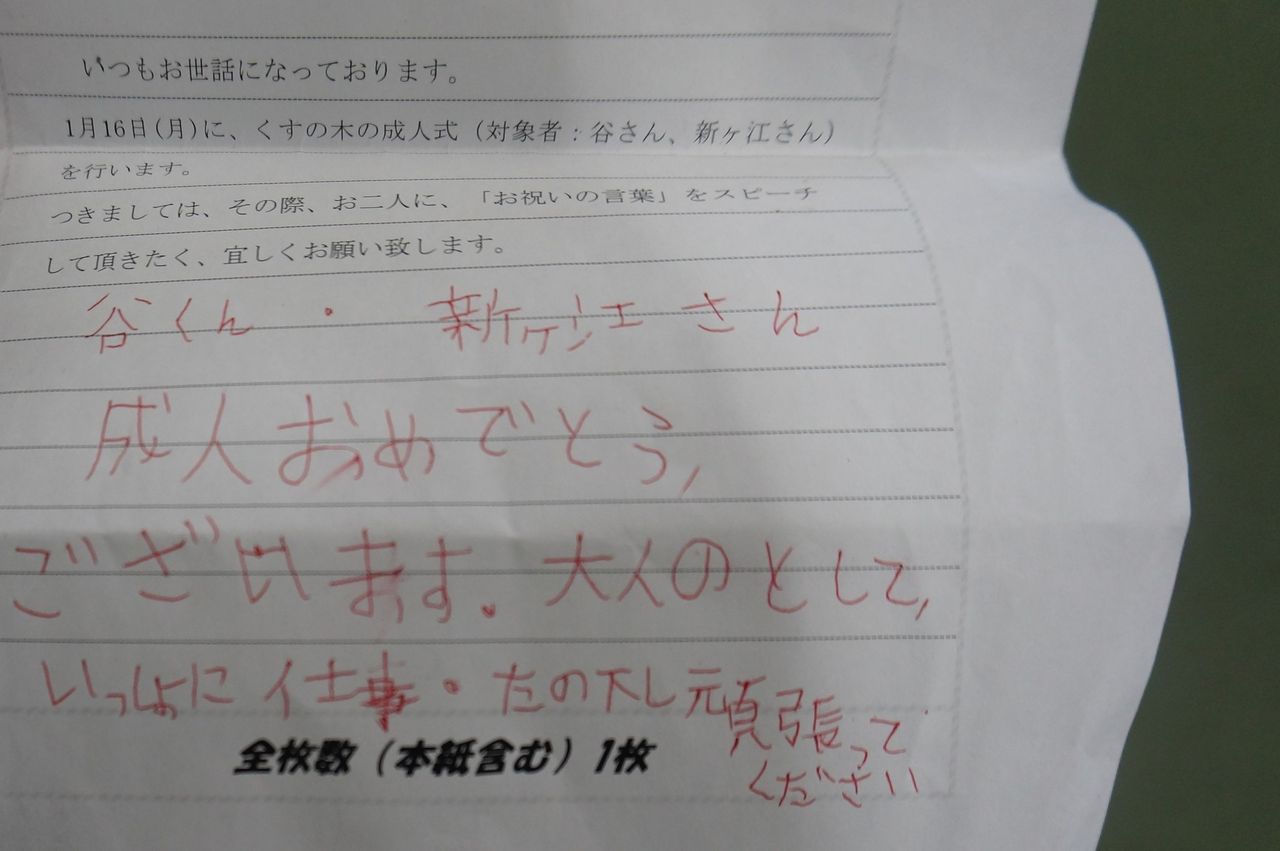 いつもお世話になっております。
1月16日(月)に、くすの木の成人式(対象者:谷さん、新ヶ江さん)
を行います。
つきましては、その際、お二人に、「お祝いの言葉」をスピーチ
して頂きたく、宜しくお願い致します。
谷くん・新ヶ江さん
成人おめでとう,
ございます.大人のとして,
いっしょに仕事・たの下し頑張って
ください
全枚数(本紙含む)1枚